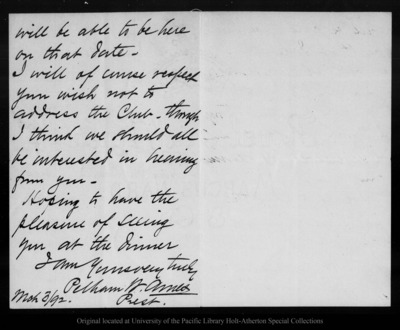 will be able to be here
on that date -
I will of course respect
your wish not to
address the Club - though
I think we should all
be interested in hearing
from you -
Hoping to have the
pleasure of seeing
you at the dinner
I am Yours very truly
Pelham W. Ames
Prest.
Mch 3/92.
Original located at University of the Pacific Library Holt-Atherton Special Collections